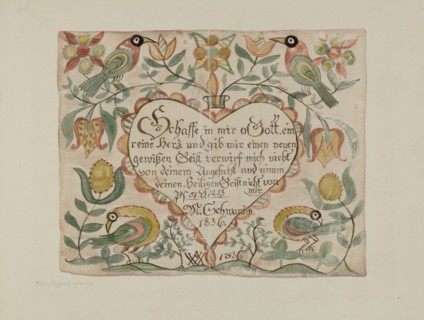 Schaffe in mir o Gott, ein
reine Herz und gib mir einen neuen
gewißen Geist verwirf mich nicht
von deinem Angesicht und nimm
deinen Heiligen Geist nicht von
mir
1836.
1836